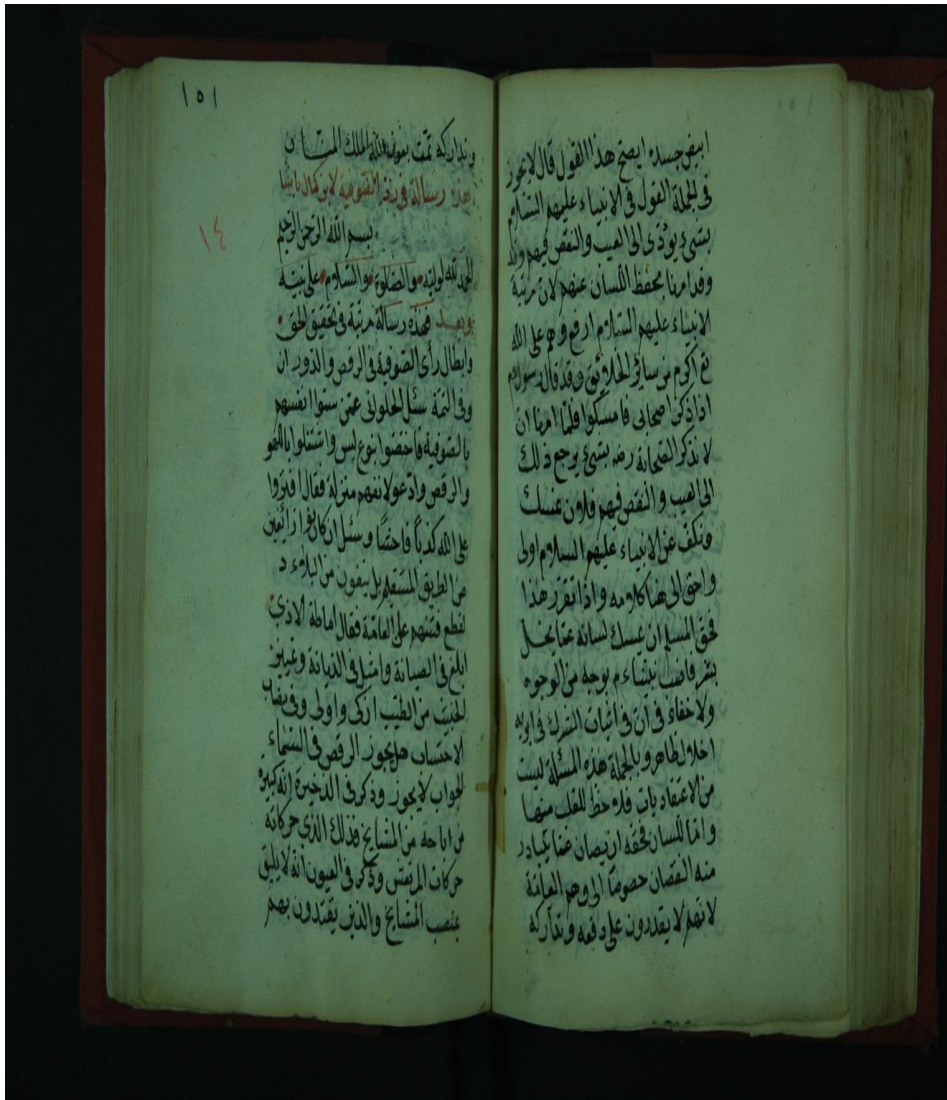 ابيض جسده ايصح هذا القول قال لا يجوز
فى الجملة القول فى الانبياء عليهم السلام
بشئ يؤدى الى العيب والنقص فيهم وقد
وقد امرنا بحفظ اللسان عنهم لان مرتبة
الانبياء عليهم السلام ارفع وهم على الله
تع اكرم من سائر الخلائق وقد قال رسول
اذا ذكر اصحابى فامسكوا فلما امرنا ان
لا نذكر الصحابة رضه بشئ يرجع ذلك
الى العيب والنقص فيهم فلان نمسك
ونكف عن الانبياء عليهم السلام اولى
واحق الى هنا كلامه واذا تقرر هذا
فحق المسلم ان يمسك لسانه عما يخل
بشرف نبينا م بوجه من الوجوه
ولا خفاء فى ان فى اثبات الشرك فى ابويه
اخلال ظاهر وبالجملة هذه المسئلة ليست
من الاعتقاديات فلا حظ للقلب منها
واما اللسان فحقه ان يصان عما يتبادر
منه النقصان خصوصا الى وهم العامة
لانهم لا يقدرون على دفعه وتداركه
١٥١
وتداركه تمت بعون الله الملك المنان
هذه رسالة فى الصوفية لابن كمال پاشا
١٤
بسم الله الرحمن الرحيم
الحمد لله لوليه والصلوة والسلام على نبيه
وبعد فهذه رسالة مرتبة فى تحقيق الحق
وابطال رأى الصوفية فى الرقص والدوران
وفى سئل الحلوانى عمن سموا انفسهم
بالصوفية فاختصوا بنوع لبس واشتغلوا باللهو
والرقص وادعوا لانفسهم منزلة فقال افتروا
على الله كذبا فاحشا وسئل ان كانوا زائغين
من الطريق المستقيم بل ينفون من البلاد
لقطع فتنتهم على العامة فقال اماطة الاذى
ابلغ فى الصيانة وامثل فى الديانة وتمييز
الخبيث من الطيب ازكى واولى وفى نصاب
الاحتساب هل يجوز الرقص فى السماع
الجواب لا يجوز وذكر فى الذخيرة انه كبيرة
من اباحه من المشايخ فذلك الذى حركاته
حركات المرتعش وذكر فى العيون انه لا يليق
بمنصب المشايخ والذين يقتدون بهم